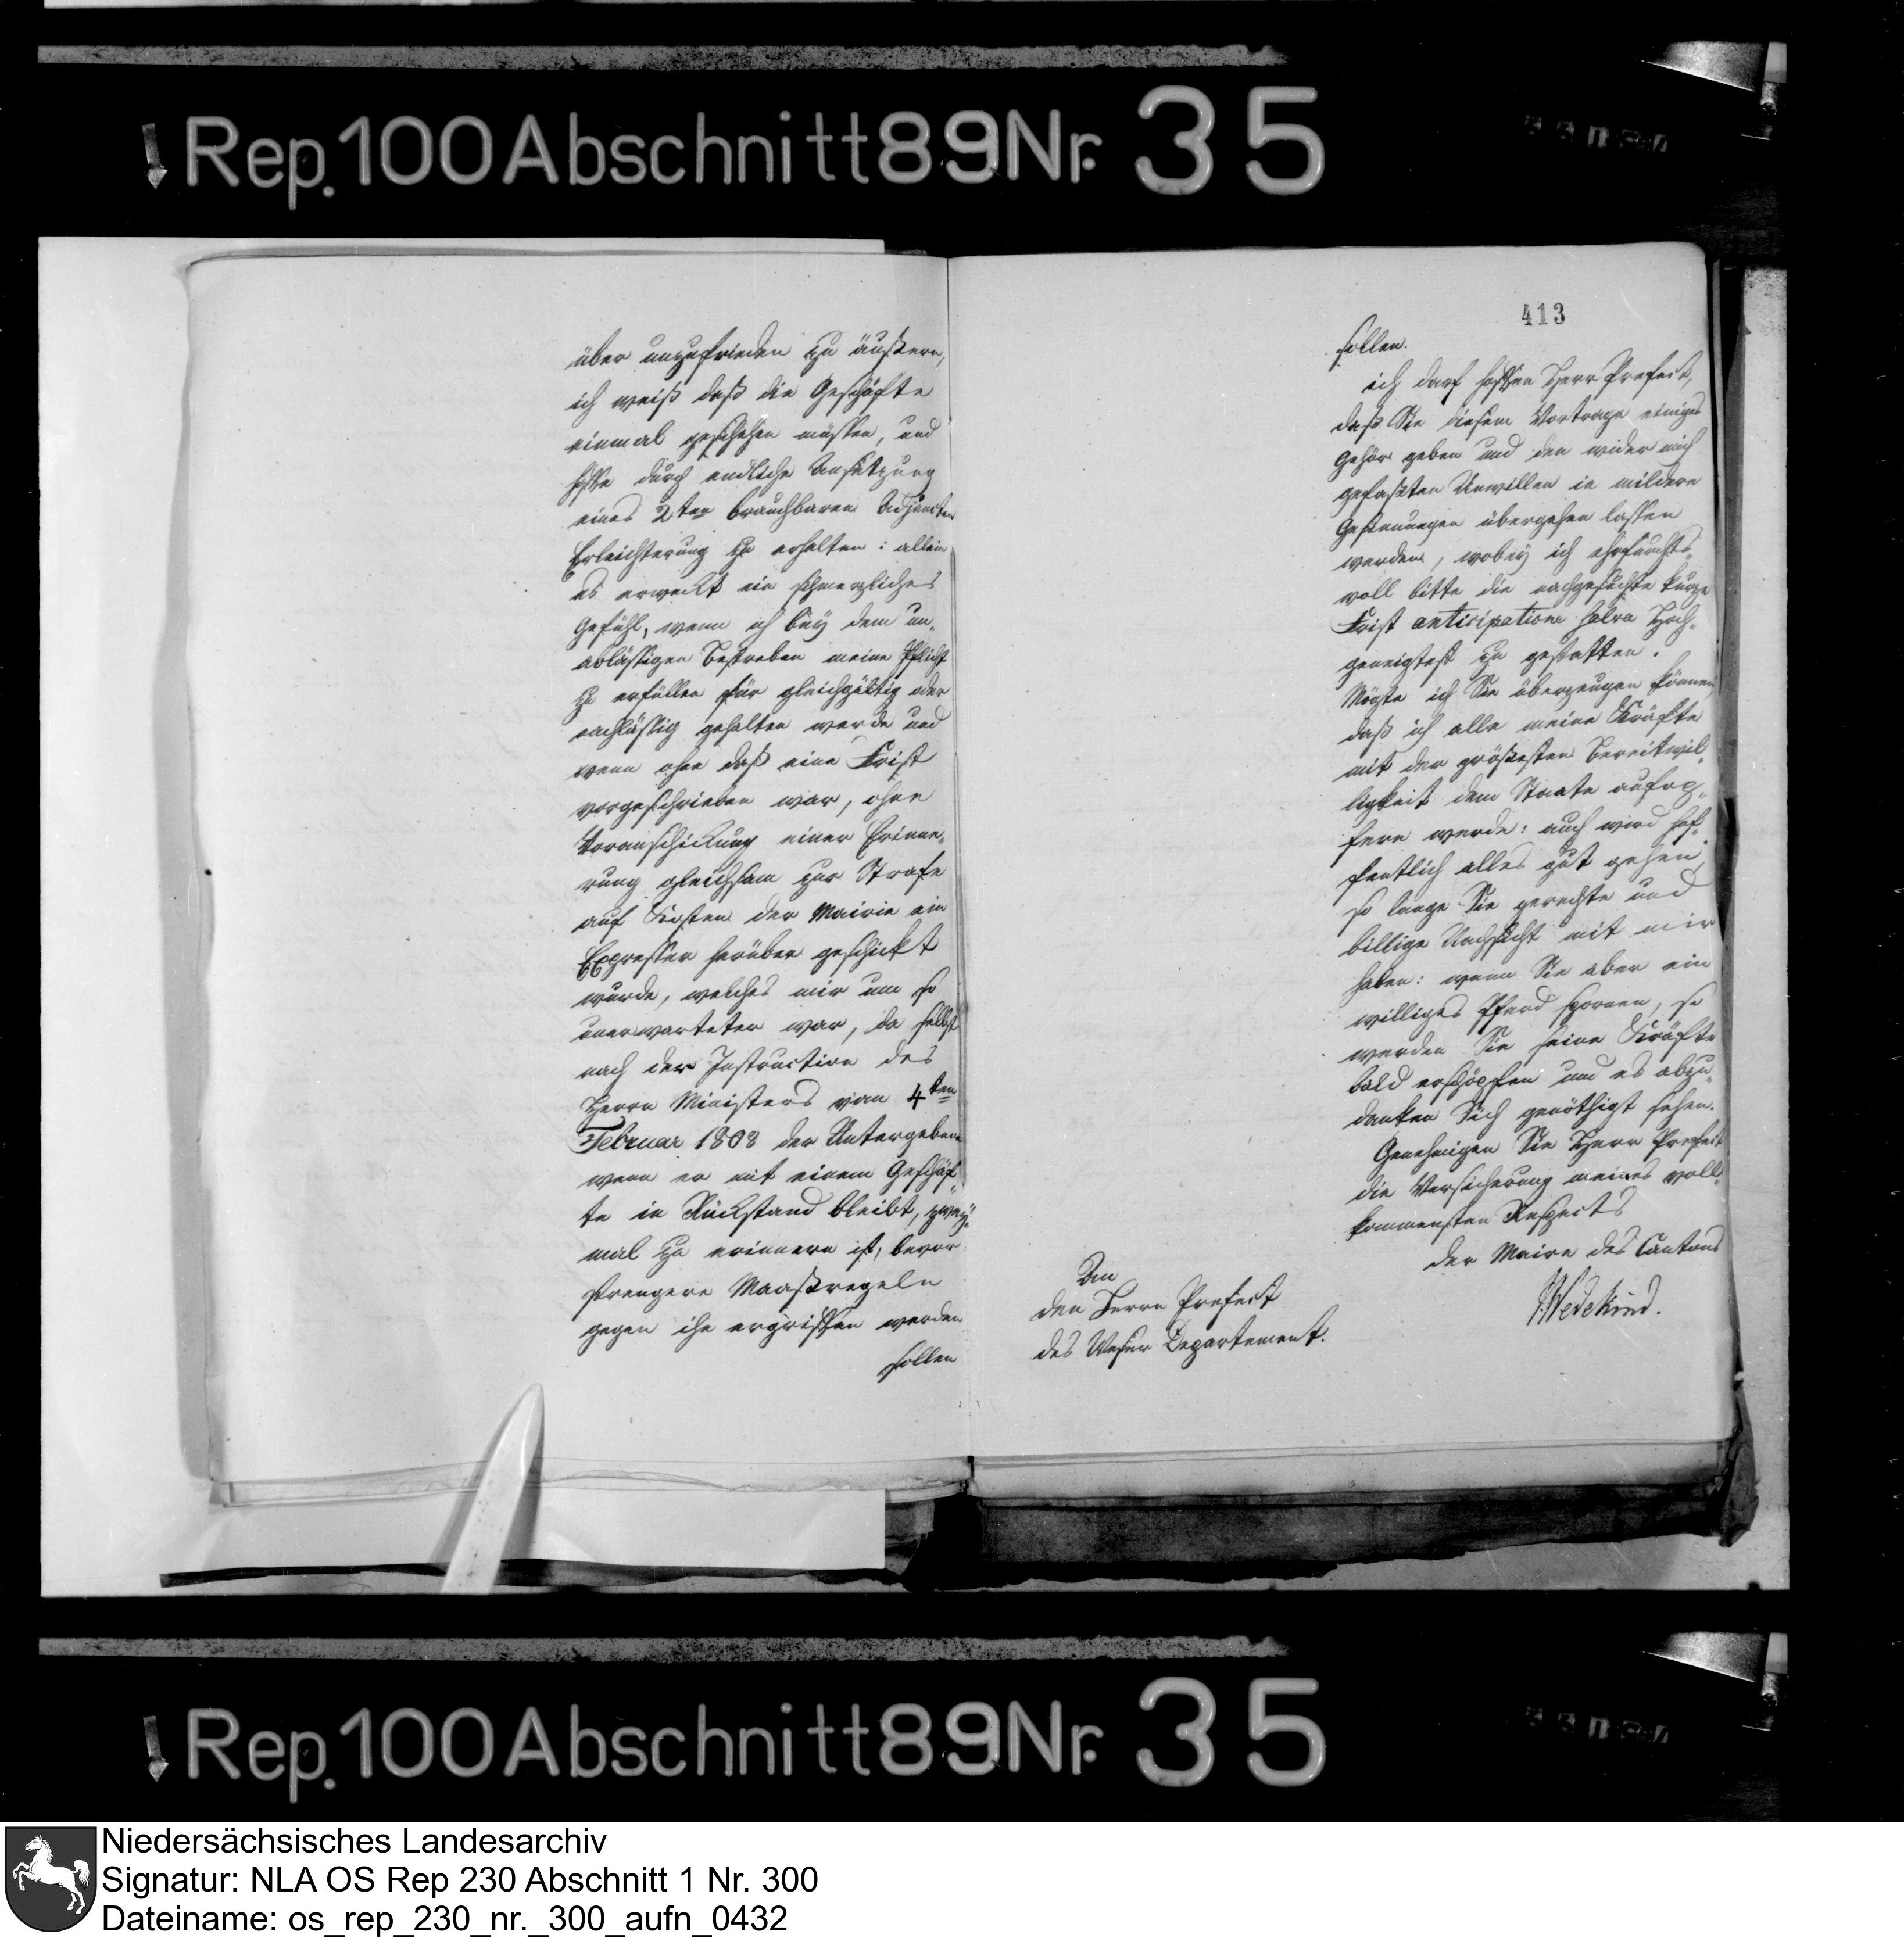 Rep. 100 Abschnitt 89 Nr. 35
über unzufrieden zu äußern,
ich weiß daß die Geschäfte
einmal geschehen müssen, und
hoffe durch endliche Ansetzung
eines 2ten brauchbaren Adjuncten
Erleichterung zu erhalten: allein
es erweckt ein schmerzliches
Gefühl, wenn ich bey dem un„
abläßigen Bestreben meine Pflicht
zu erfüllen für gleichgültig oder
nachläßig gehalten werde und
wenn ohne daß eine Frist
vorgeschrieben war, ohne
Voranschickung einer Erinne„
rung gleichsam zur Strafe
auf Kosten der Mairie ein
Expresser herüber geschickt
wurde, welches mir um so
unerwarteter war, da selbst
nach der Instruction des
Herrn Ministers vom 4ten
Februar 1808 der Untergebene
wenn er mit einem Geschäf„
te in Rückstand bleibt, zwey„
mal zu erinnern ist, bevor
strengere Maaßregeln
gegen ihn ergriffen werden
sollen
413
sollen.
ich darf hoffen Herr Prefect,
daß Sie diesem Vortrage einiges
Gehör geben und den wider mich
gefaßten Unwillen in mildere
Gesinnungen übergehen lassen
werden, wobey ich ehrfurchts„
voll bitte die nachgesuchte kurze
Frist anticipatione salva Hoch„
geneigtest zu gestatten.
Mögte ich Sie überzeugen können,
daß ich alle meine Kräfte
mit der größesten Bereitwil„
ligkeit dem Staate aufop„
fern werde: auch wird hof„
fentlich alles gut gehen,
so lange Sie gerechte und
billige Nachsicht mit mir
haben: wenn Sie aber ein
williges Pferd spornen, so
werden Sie seine Kräfte
bald erschöpfen und es abzu„
danken Sich genöthigt sehen.
Genehmigen Sie Herr Prefect
die Versicherung meines voll„
kommensten Respects
der Maire des Cantons
Wedekind.
An
den Herrn Prefect
des Weser Departement.
Rep. 100 Abschnitt 89 Nr. 35
Niedersächsisches Landesarchiv
Signatur: NLA OS Rep 230 Abschnitt 1 Nr. 300
Dateiname: os_rep_230_nr._300_aufn_0432